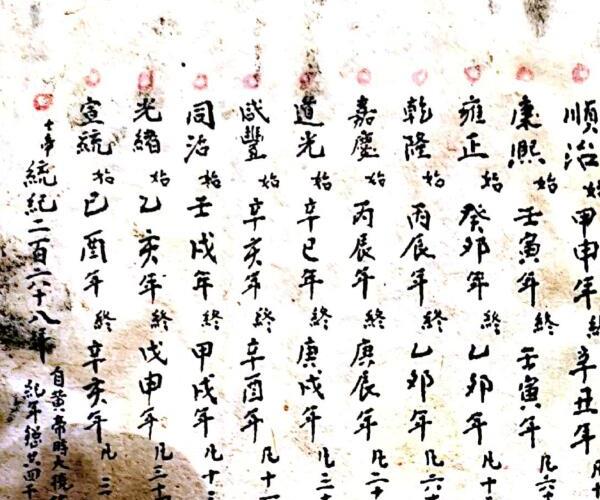 順治始甲申年終辛丑年
康熙始壬寅年終壬寅年凡六十
雍正始癸卯年終乙卯年凡十
乾隆始丙辰年終乙卯年凡六
嘉慶始丙辰年終庚辰年凡二十
道光始辛巳年終庚戌年凡三十
咸豐始辛亥年終辛酉年凡十一
同治始壬戌年終甲戌年凡十三
光緒始乙亥年終戊申年凡三十
宣統始己酉年終辛亥年凡三
十帝統紀二百六十八年
自黃帝時大撓
紀年總共四千